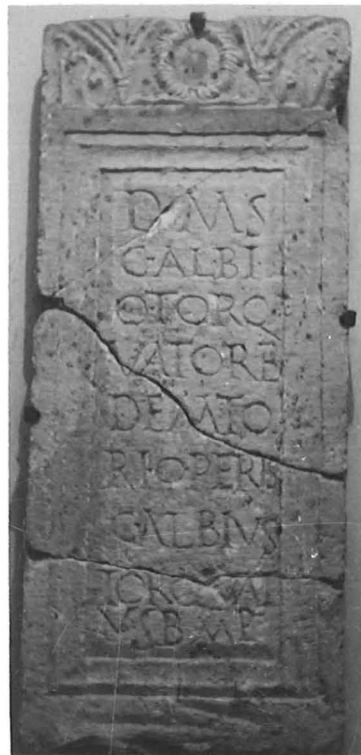 D·M·S
C·ALBI
O·TORQ
VATO RE
DEMTO
RI·OPERIS
C·ALBIVS
TORQVAT
VS B·M·P·